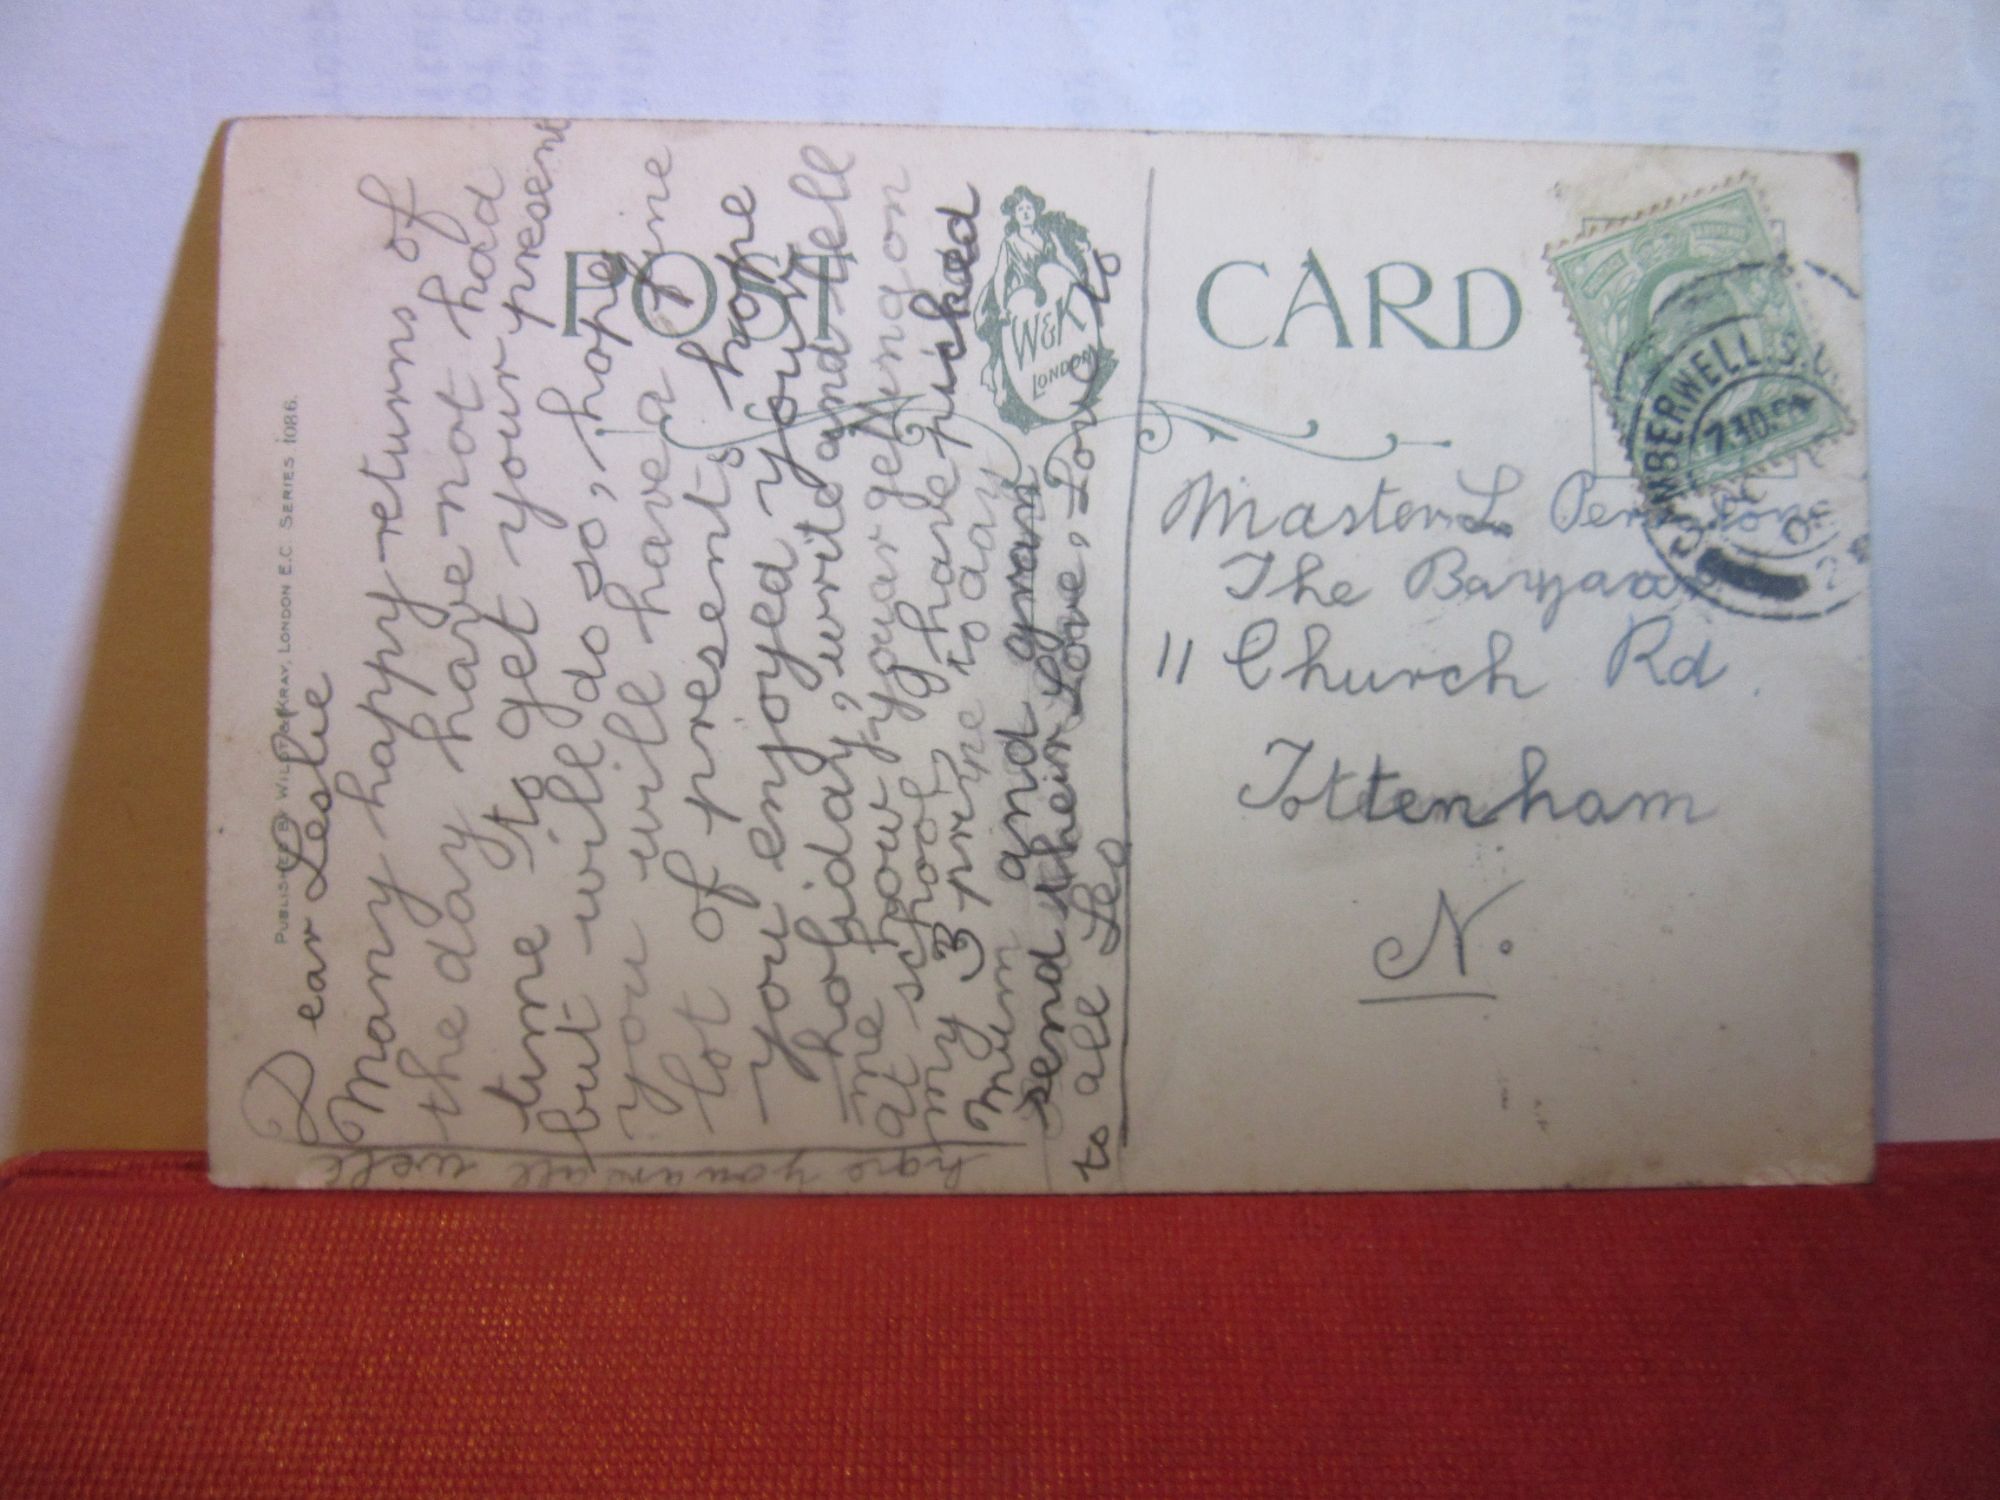 PUBLISHED BY WILDT & KRAY, LONDON E.C. SERIES 1086.
POST CARD
W&K
LONDON
Dear Leslie
Many happy returns of
the day have not had
time to get your present
but will do so, hope
you will have a fine
lot of presents hope
you enjoyed your
holiday, write and tell
me how your getting on
at school, I have pushed
my 3 to day
Mum and gran
send their Love, Love to
to all Leo
hope you are all well
Master L.
The
11 Church Rd.
Tottenham
N.
MBERWELL. S.
7.30